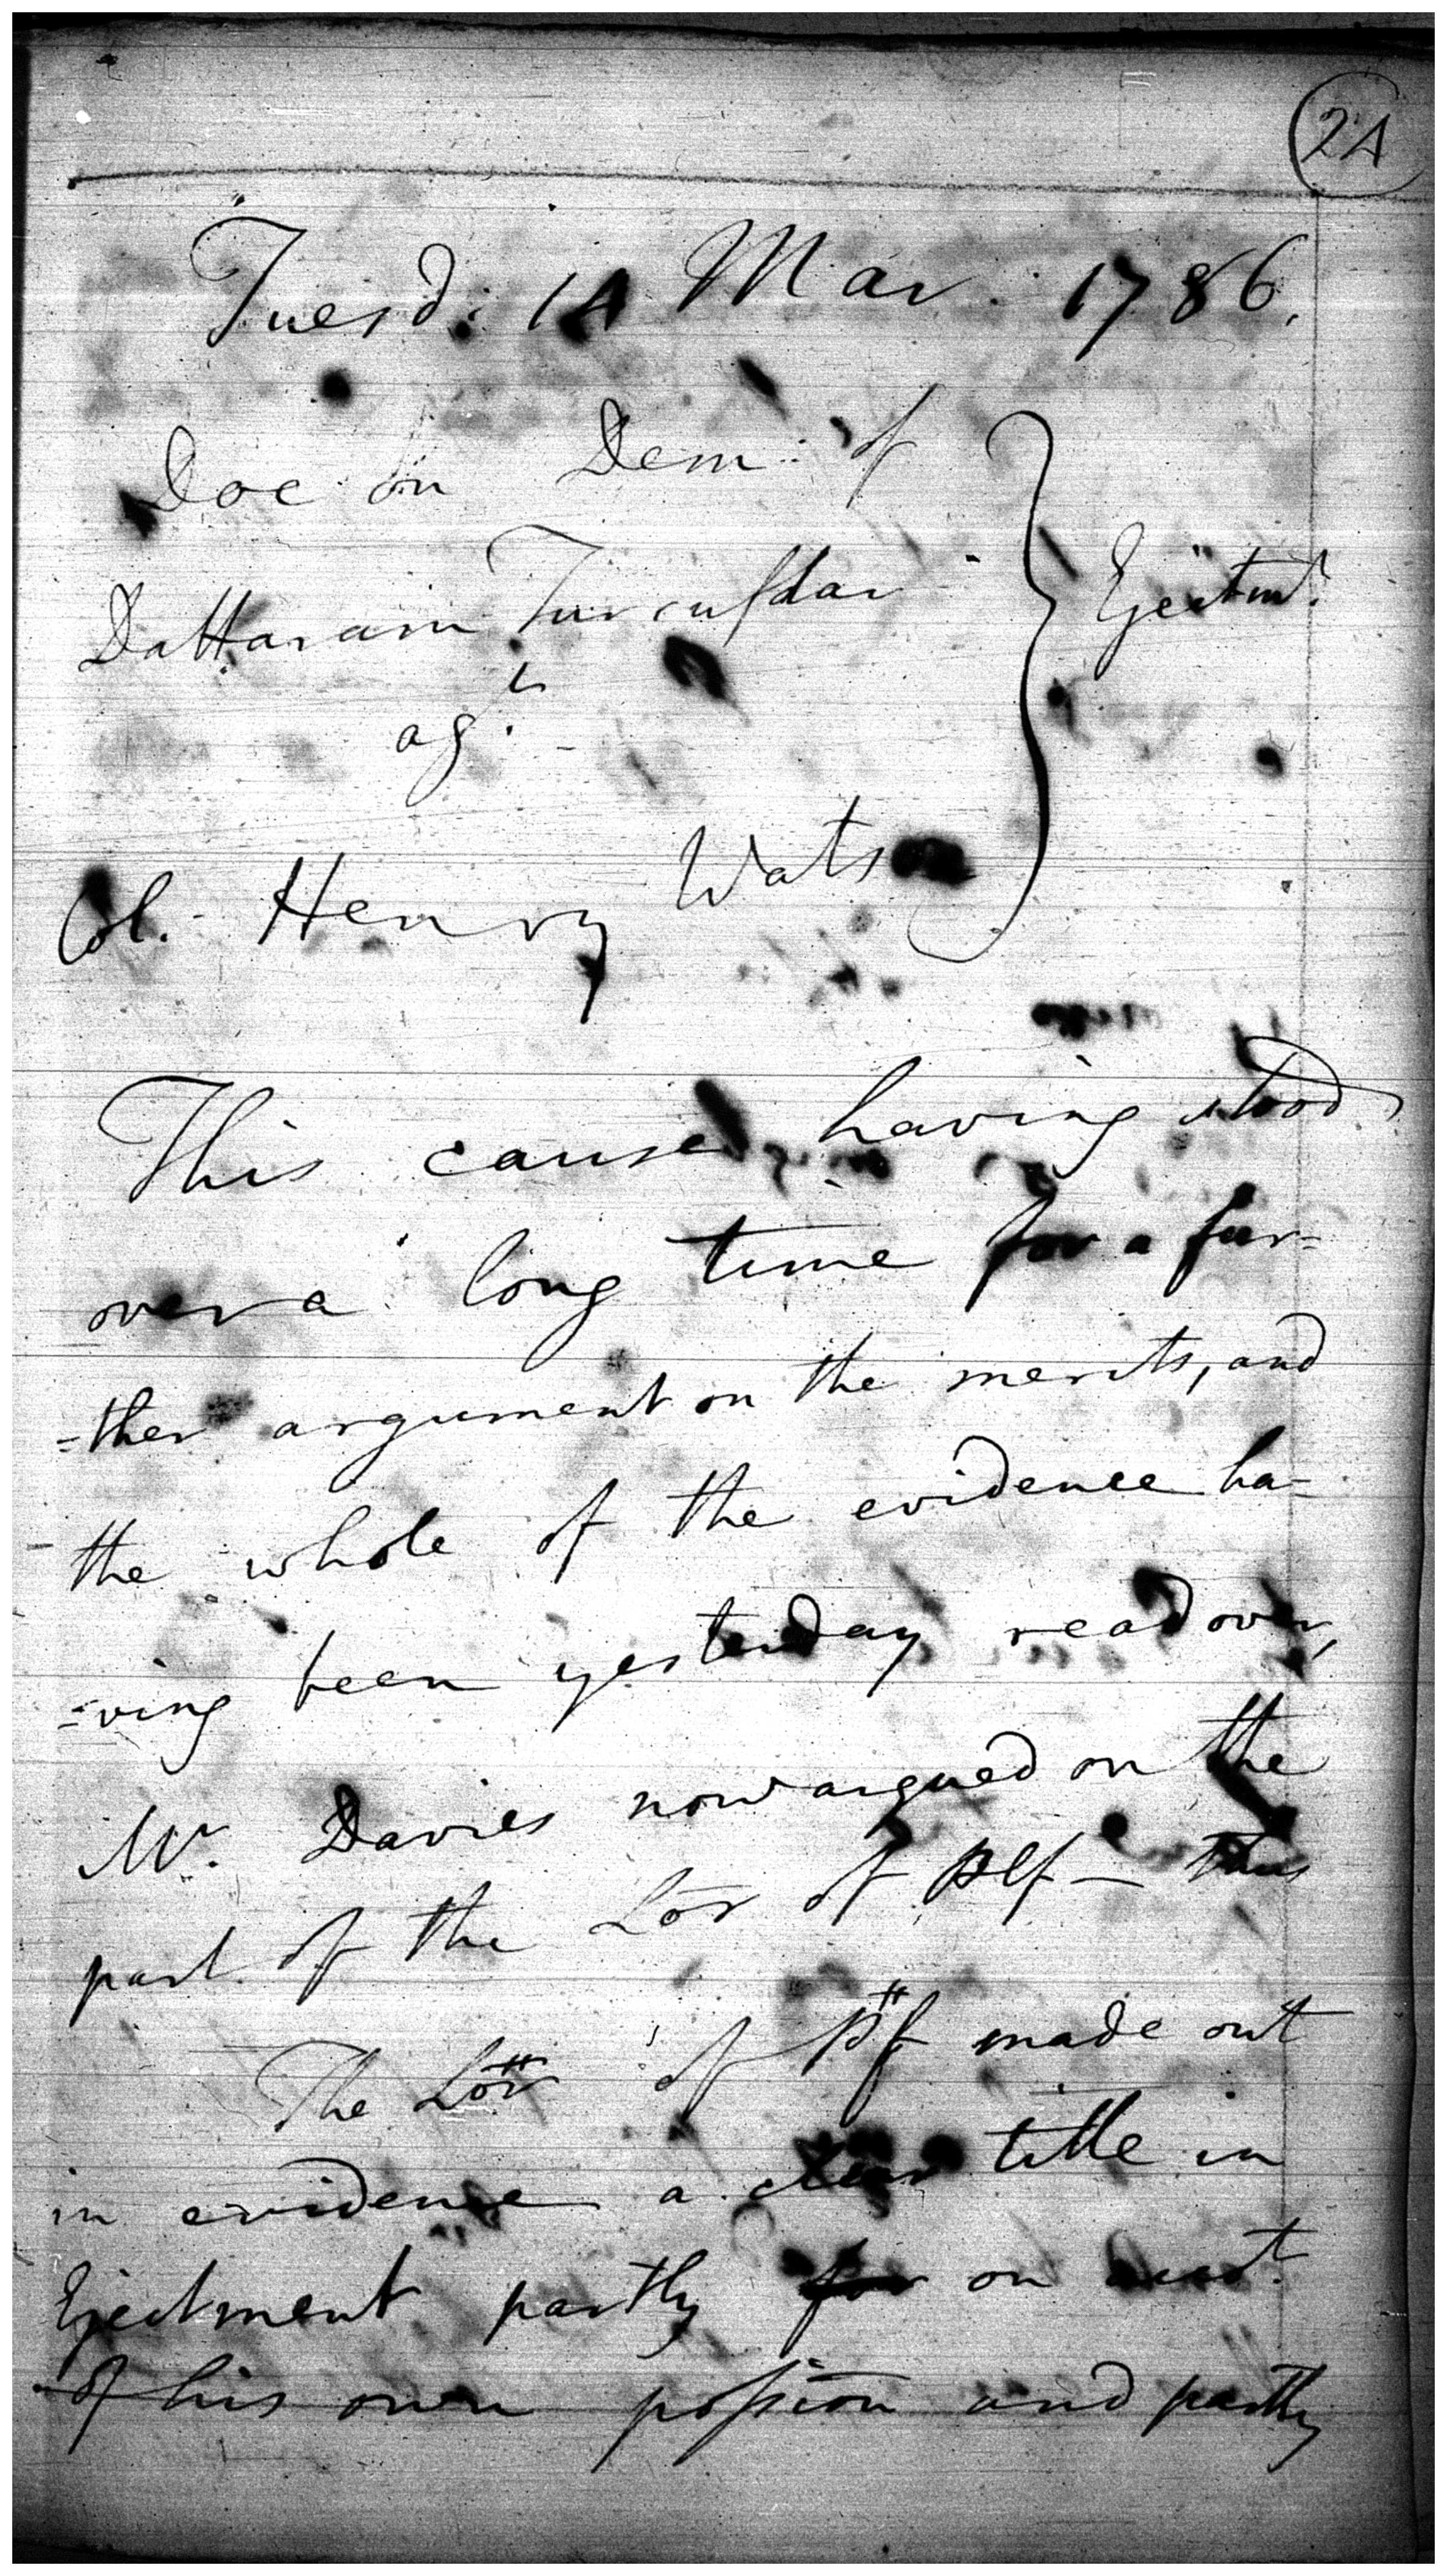 2A
Tuesd: 14 Mar. 1786.
Doe on Dem: of
Dattaram Turcufdar
Ejectmt.
agt.
Col. Henry Watson
This cause having stood
over a long time for a fur=
=ther argument on the merits, and
the whole of the evidence ha=
=ving been yesterday read over,
Mr. Davies now argued on the
part of the Lor of Plf — thus
The Lor of Pf made out
in evidence a clear title in
Ejectment partly for on acct.
of his own possion and partly